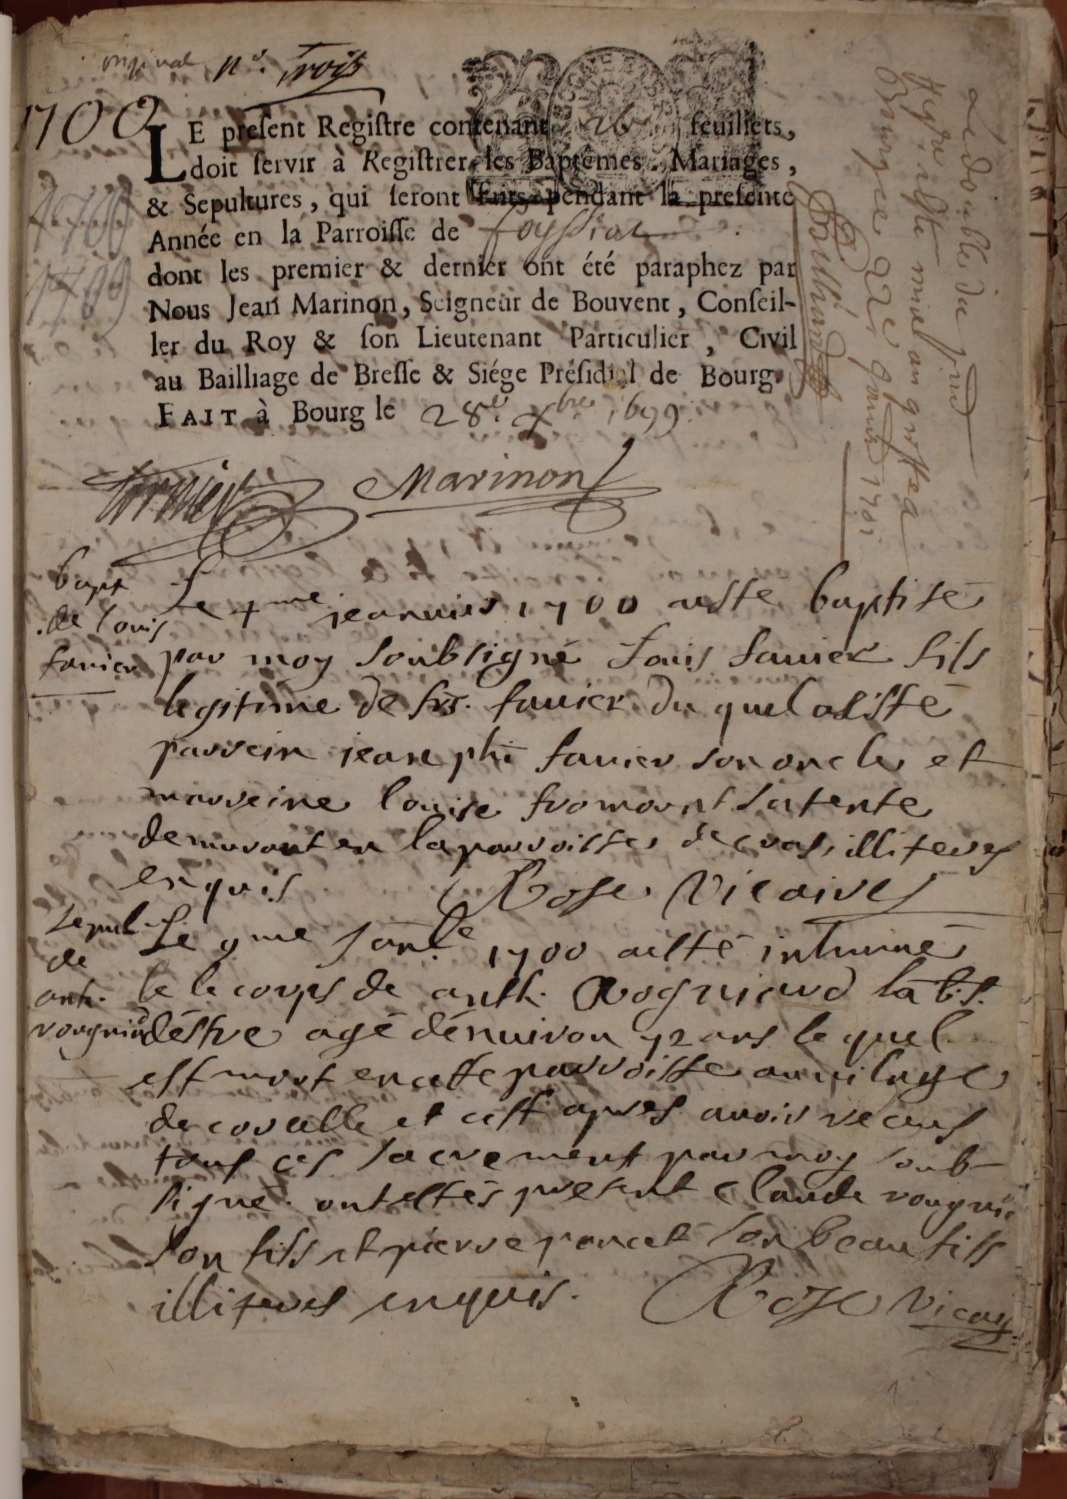 original nº. Trois
1700
LE preſent Regiſtre contenant 26 feuillets,
doit ſervir à Regiſtrer les Baptêmes, Mariages,
& Sepultures, qui ſeront faits pendant la preſente
Année en la Parroiſſe de foyssiat
dont les premier & dernier ont été paraphez par
Nous Jean Marinon, Seigneur de Bouvent, Conſeil-
ler du Roy & ſon Lieutenant Particulier, Civil
au Bailliage de Breſſe & Siége Préſidial de Bourg.
FAIT à Bourg le 28e. Xbre 1699
Marinon
Le double du
1701
bapt
de louis
favier
Le 4me jeanvier 1700 a esté baptisé
par moy soubsigné Louis favier fils
legitime de frs. favier du quel a esté
parrein jean phi favier son oncle et
marreine louise fromont sa tente
demurant en la parroisse de cras, illiteres
enquis Rose Vicaire
sepul.
de
anth.
rougniard
Le 9me janv. 1700 a esté inhumé
le corps de anth. Rogniard
agé d'énuiron 72 ans le quel
est mort en cette parroisse au vilage
de covelle et cest apres avoir receus
tous ces sacrement par moy soub-
signé. ont estés present Claude rougni
son fils et pierre poncet son beau fils
illiteres enquis. Rose Vicaire